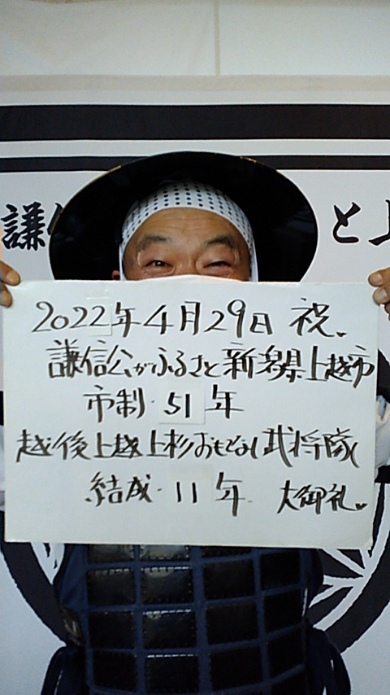 謙信 と上
2022年4月29日 祝。
謙信公がふるさと新潟県上越市
市制・51年
越後上越上杉おもてなし武将隊
結成・11年 大御礼。